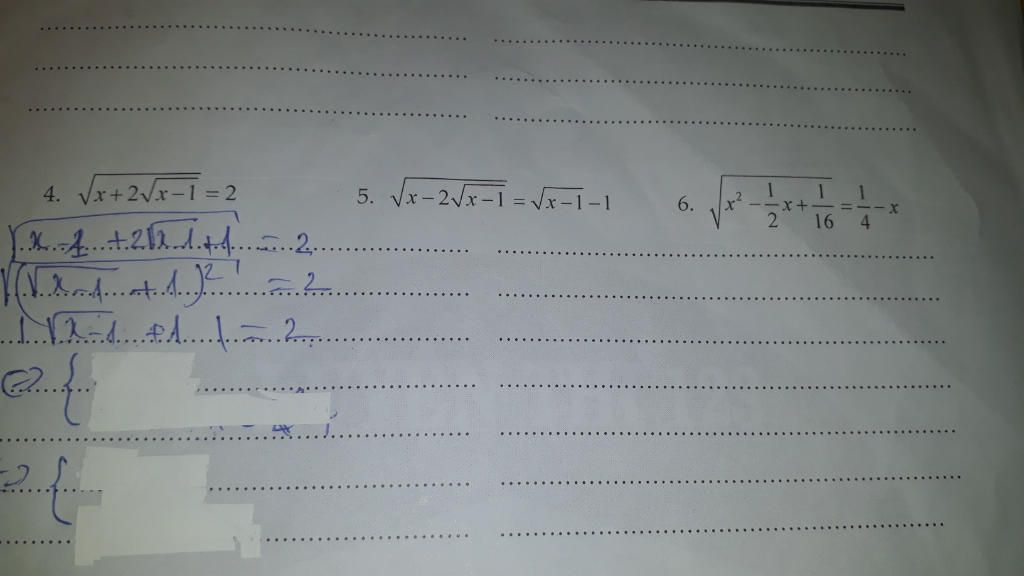 4. √(x+2√(x−1)) = 2
5. √(x−2√(x−1)) = √(x−1) −1
6. √(x² − 1/2 x + 1/16) = 1/4 − x
√(x −1 +2√(x−1) +1) = 2
√((√(x−1) +1)²) = 2
|√(x−1) +1| = 2
⇔ {
⇔ {